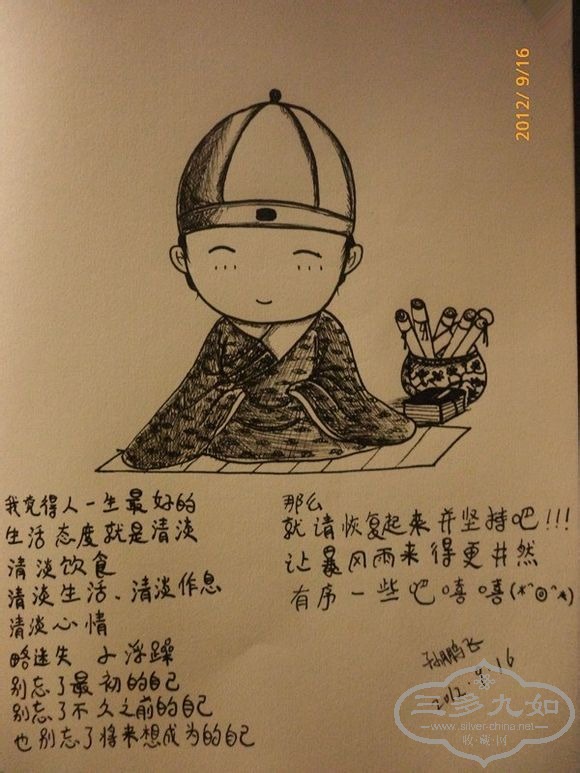 2012/ 9/16
我觉得人一生最好的
生活态度就是清淡
清淡饮食
清淡生活、清淡作息
清淡心情
略迷失 小浮躁
别忘了最初的自己
别忘了不久之前的自己
也别忘了将来想成为的自己
那么
就请恢复起来并坚持吧!!!
让暴风雨来得更井然
有序一些吧嘻嘻(*^◎^*)
孙鹏飞
2012.9.16
三多九如
www.silver-china.net
收·藏·网